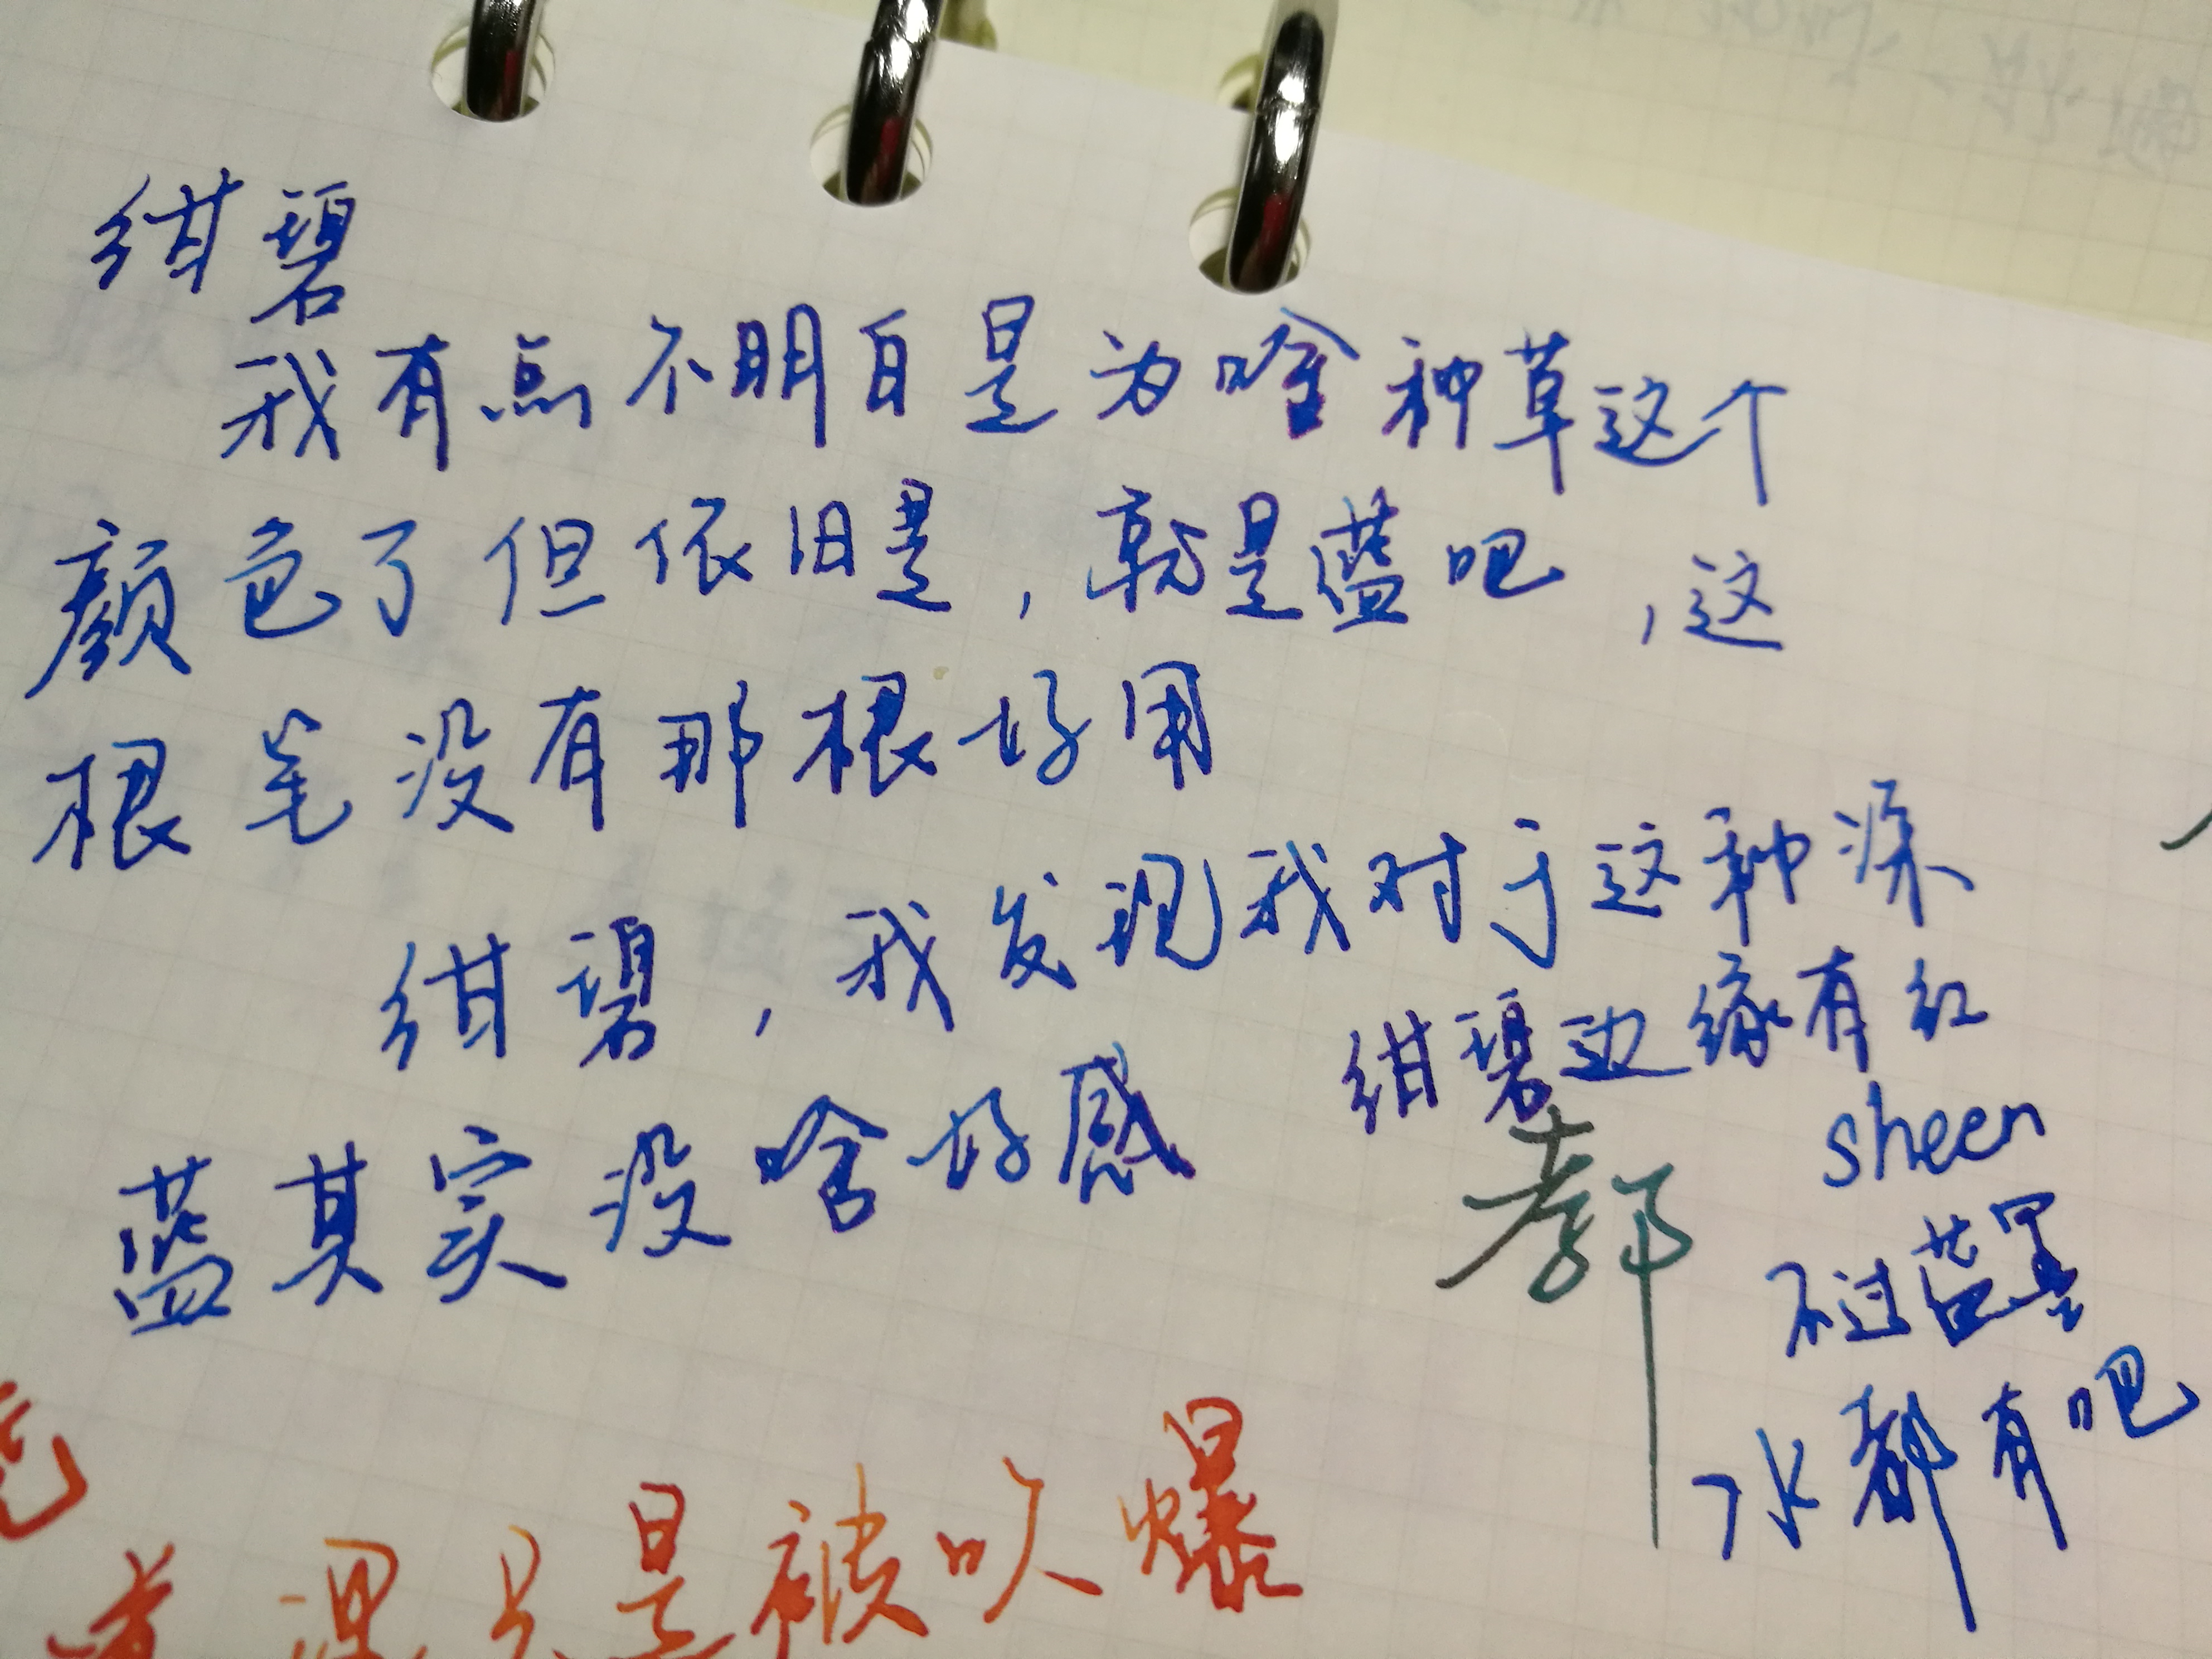 绀碧
我有点不明白是为啥种草这个
颜色了但依旧是，就是蓝吧，这
根笔没有那根好用
绀碧，我发现我对于这种深
蓝其实没啥好感
绀碧边缘有红
sheen
不过蓝墨
水都有吧
都
是被吹爆